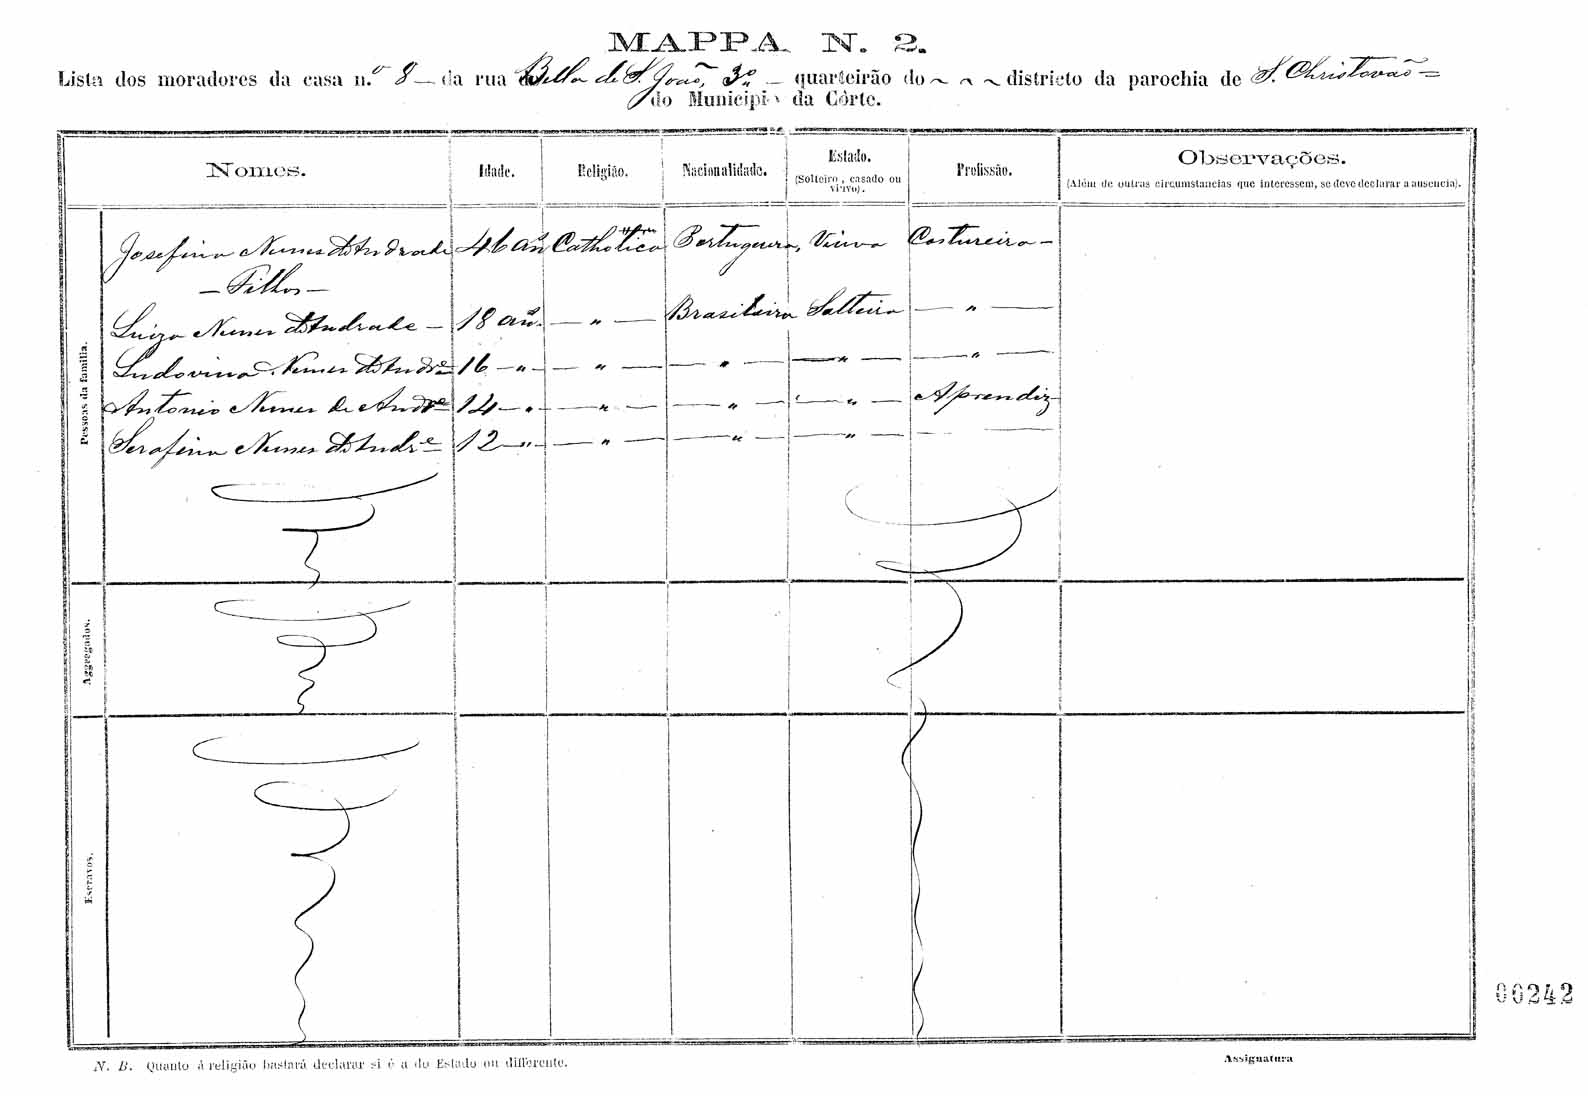 MAPPA N. 2.
Lista dos moradores da casa n.º 8 — da rua Bella de S. João, 3º — quarteirão do ~ ~ ~ districto da parochia de S. Christovão =
do Municipio da Côrte.
Nomes. Idade. Religião. Nacionalidade. Estado. (Solteiro, casado ou viuvo). Profissão. Observações. (Além de outras circumstancias que interessem, se deve declarar a ausencia).
Pessoas da familia.
Josefina Nunes d'Andrade 46 an Catholica Portugueza, Viuva Costureira —
— Filhos —
Luiza Nunes d'Andrade — 18 an. — " — Brasileira Solteira — " —
Ludovina Nunes d'Andre 16 — " — — " — — " — — " — — " —
Antonio Nunes de Andre 14 — " — " — — " — — " — Aprendiz
Serafina Nunes d'Andre 12 — " — — " — — " — — " — — —
Aggregados.
Escravos.
00242
N. B. Quanto á religião bastará declarar si é a do Estado ou differente.
Assignatura